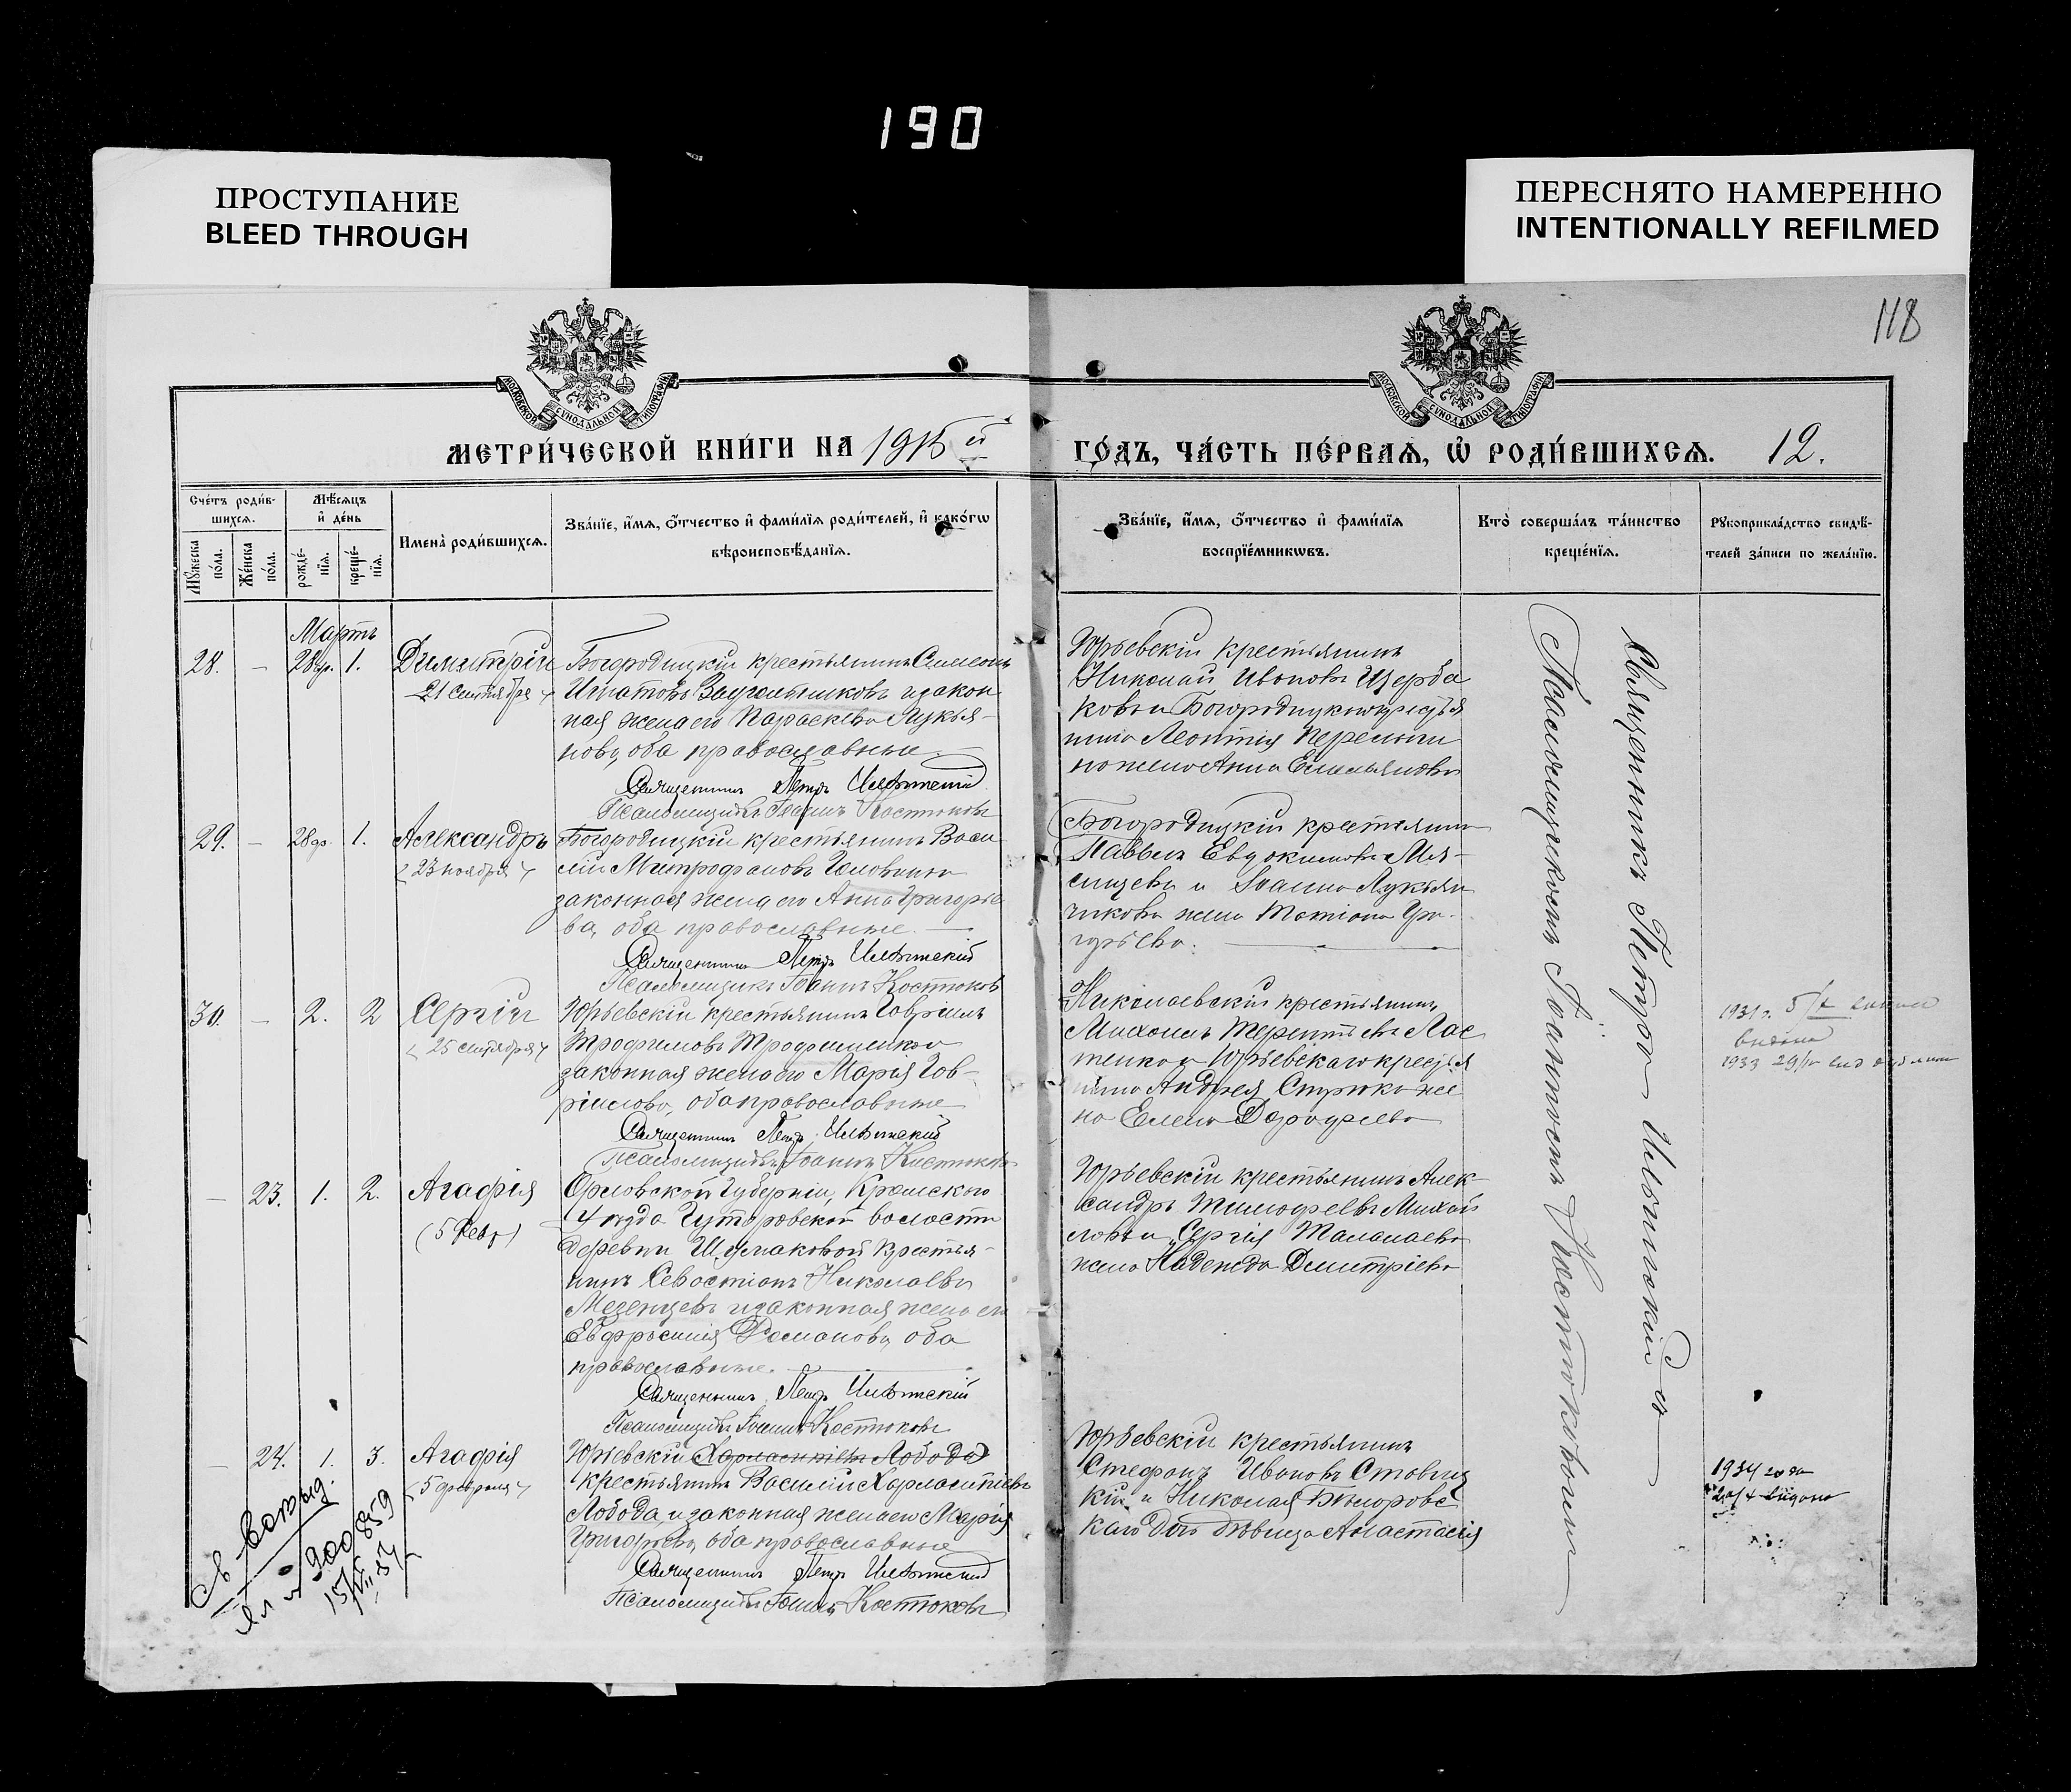 190
ПРОСТУПАНИЕ
BLEED THROUGH
ПЕРЕСНЯТО НАМЕРЕННО
INTENTIONALLY REFILMED
118
МОСКОВСКОЙ СУНОДАЛЬНОЙ ТИПОГРАФІИ
МОСКОВСКОЙ СУНОДАЛЬНОЙ ТИПОГРАФІИ
МЕТРИ́ЧЕСКОЙ КНИ́ГИ НА 1915 й
ГО́ДЪ, ЧА́СТЬ ПЕ́РВАѦ, Ѡ҆ РОДИ́ВШИХСѦ. 12.
Сче́тъ роди́в-
шихсѧ.
Мѣ́сѧцъ
и҆ де́нь
Мꙋ́жеска
по́ла.
Же́нска
по́ла.
рожде́-
нїѧ.
креще́-
нїѧ.
Имена̀ роди́вшихсѧ.
Зва́нїе, и҆́мѧ, ѻ҆́тчество и҆ фами́лїѧ роди́телей, и҆ како́гѡ
вѣроисповѣ́данїѧ.
Зва́нїе, и҆́мѧ, ѻ҆́тчество и҆ фами́лїѧ
воспрїе́мникѡвъ.
Кто̀ соверша́лъ та́инство
креще́нїѧ.
Рꙋкоприкла́дство свидѣ́-
телей за́писи по жела́нїю.
Мартъ
28. - 28 фр. 1. Димитрій
21 сентября
Богородицкій крестьянинъ Симеонъ
Игнатовъ и закон
ная жена его Параскева Лукья-
нова, оба православные
Священникъ Петръ
Псаломщикъ Іоаннъ Костюковъ
Юрьевскій крестьянинъ
Николай Ивановъ Щерба
ковъ и Богородицкаго крестья
нина Леонтія
жена Анна Емельянова
29. - 28 фр. 1. Александръ
23 ноября
Богородицкій крестьянинъ Васи
лій Митрофановъ Головинъ
законная жена его Анна Григорье
ва, оба православные.
Священникъ Петръ
Псаломщикъ Іоаннъ Костюковъ
Богородицкій крестьянинъ
Павелъ Евдокимовъ Мя-
сищевъ и Іоанна Лукьян
чикова жена Матрона Гри-
горьева.
30. - 2. 2 Сергій
25 сентября
Юрьевскій крестьянинъ Гавріилъ
Трофимовъ Трофименко и
законная жена его Марія Гав-
ріилова, оба православные
Священникъ Петръ
Псаломщикъ Іоаннъ Костюковъ
Николаевскій крестьянинъ
Михаилъ Терентьевъ Лас
тенко и Юрьевскаго крестья
нина Андрея Стрюка же
на Елена Дорофеева
1931 г. 5/X
видана
1933 29/IV
- 23. 1. 2. Агафія
(5 Февр)
Орловской Губерніи, Кромскаго
уѣзда Гуторовской волости
деревни Шумаковой крестья-
нинъ Севостіанъ Николаевъ
Мезенцевъ и законная жена его
Евфросинія Романова, оба
православные.
Священникъ Петръ
Псаломщикъ Іоаннъ Костюковъ
Юрьевскій крестьянинъ Алек-
сандръ Тимофеевъ Михай
ловъ и Сергія Малапаева
жена Надежда Димитріева
- 24. 1. 3. Агафія
5 февраля
Юрьевскій Харлампіевъ Лобода
крестьянинъ Василій Харлампіевъ
Лобода и законная жена его Марія
Григорьева, оба православные
Священникъ Петръ
Псаломщикъ Іоаннъ Костюковъ
Юрьевскій крестьянинъ
Стефанъ Ивановъ Ставиц
кій и Николая
каго дочь дѣвица Анастасія
1934 года
видано
Священникъ Петръ
Псаломщикомъ Іоанномъ Костюковымъ
900859